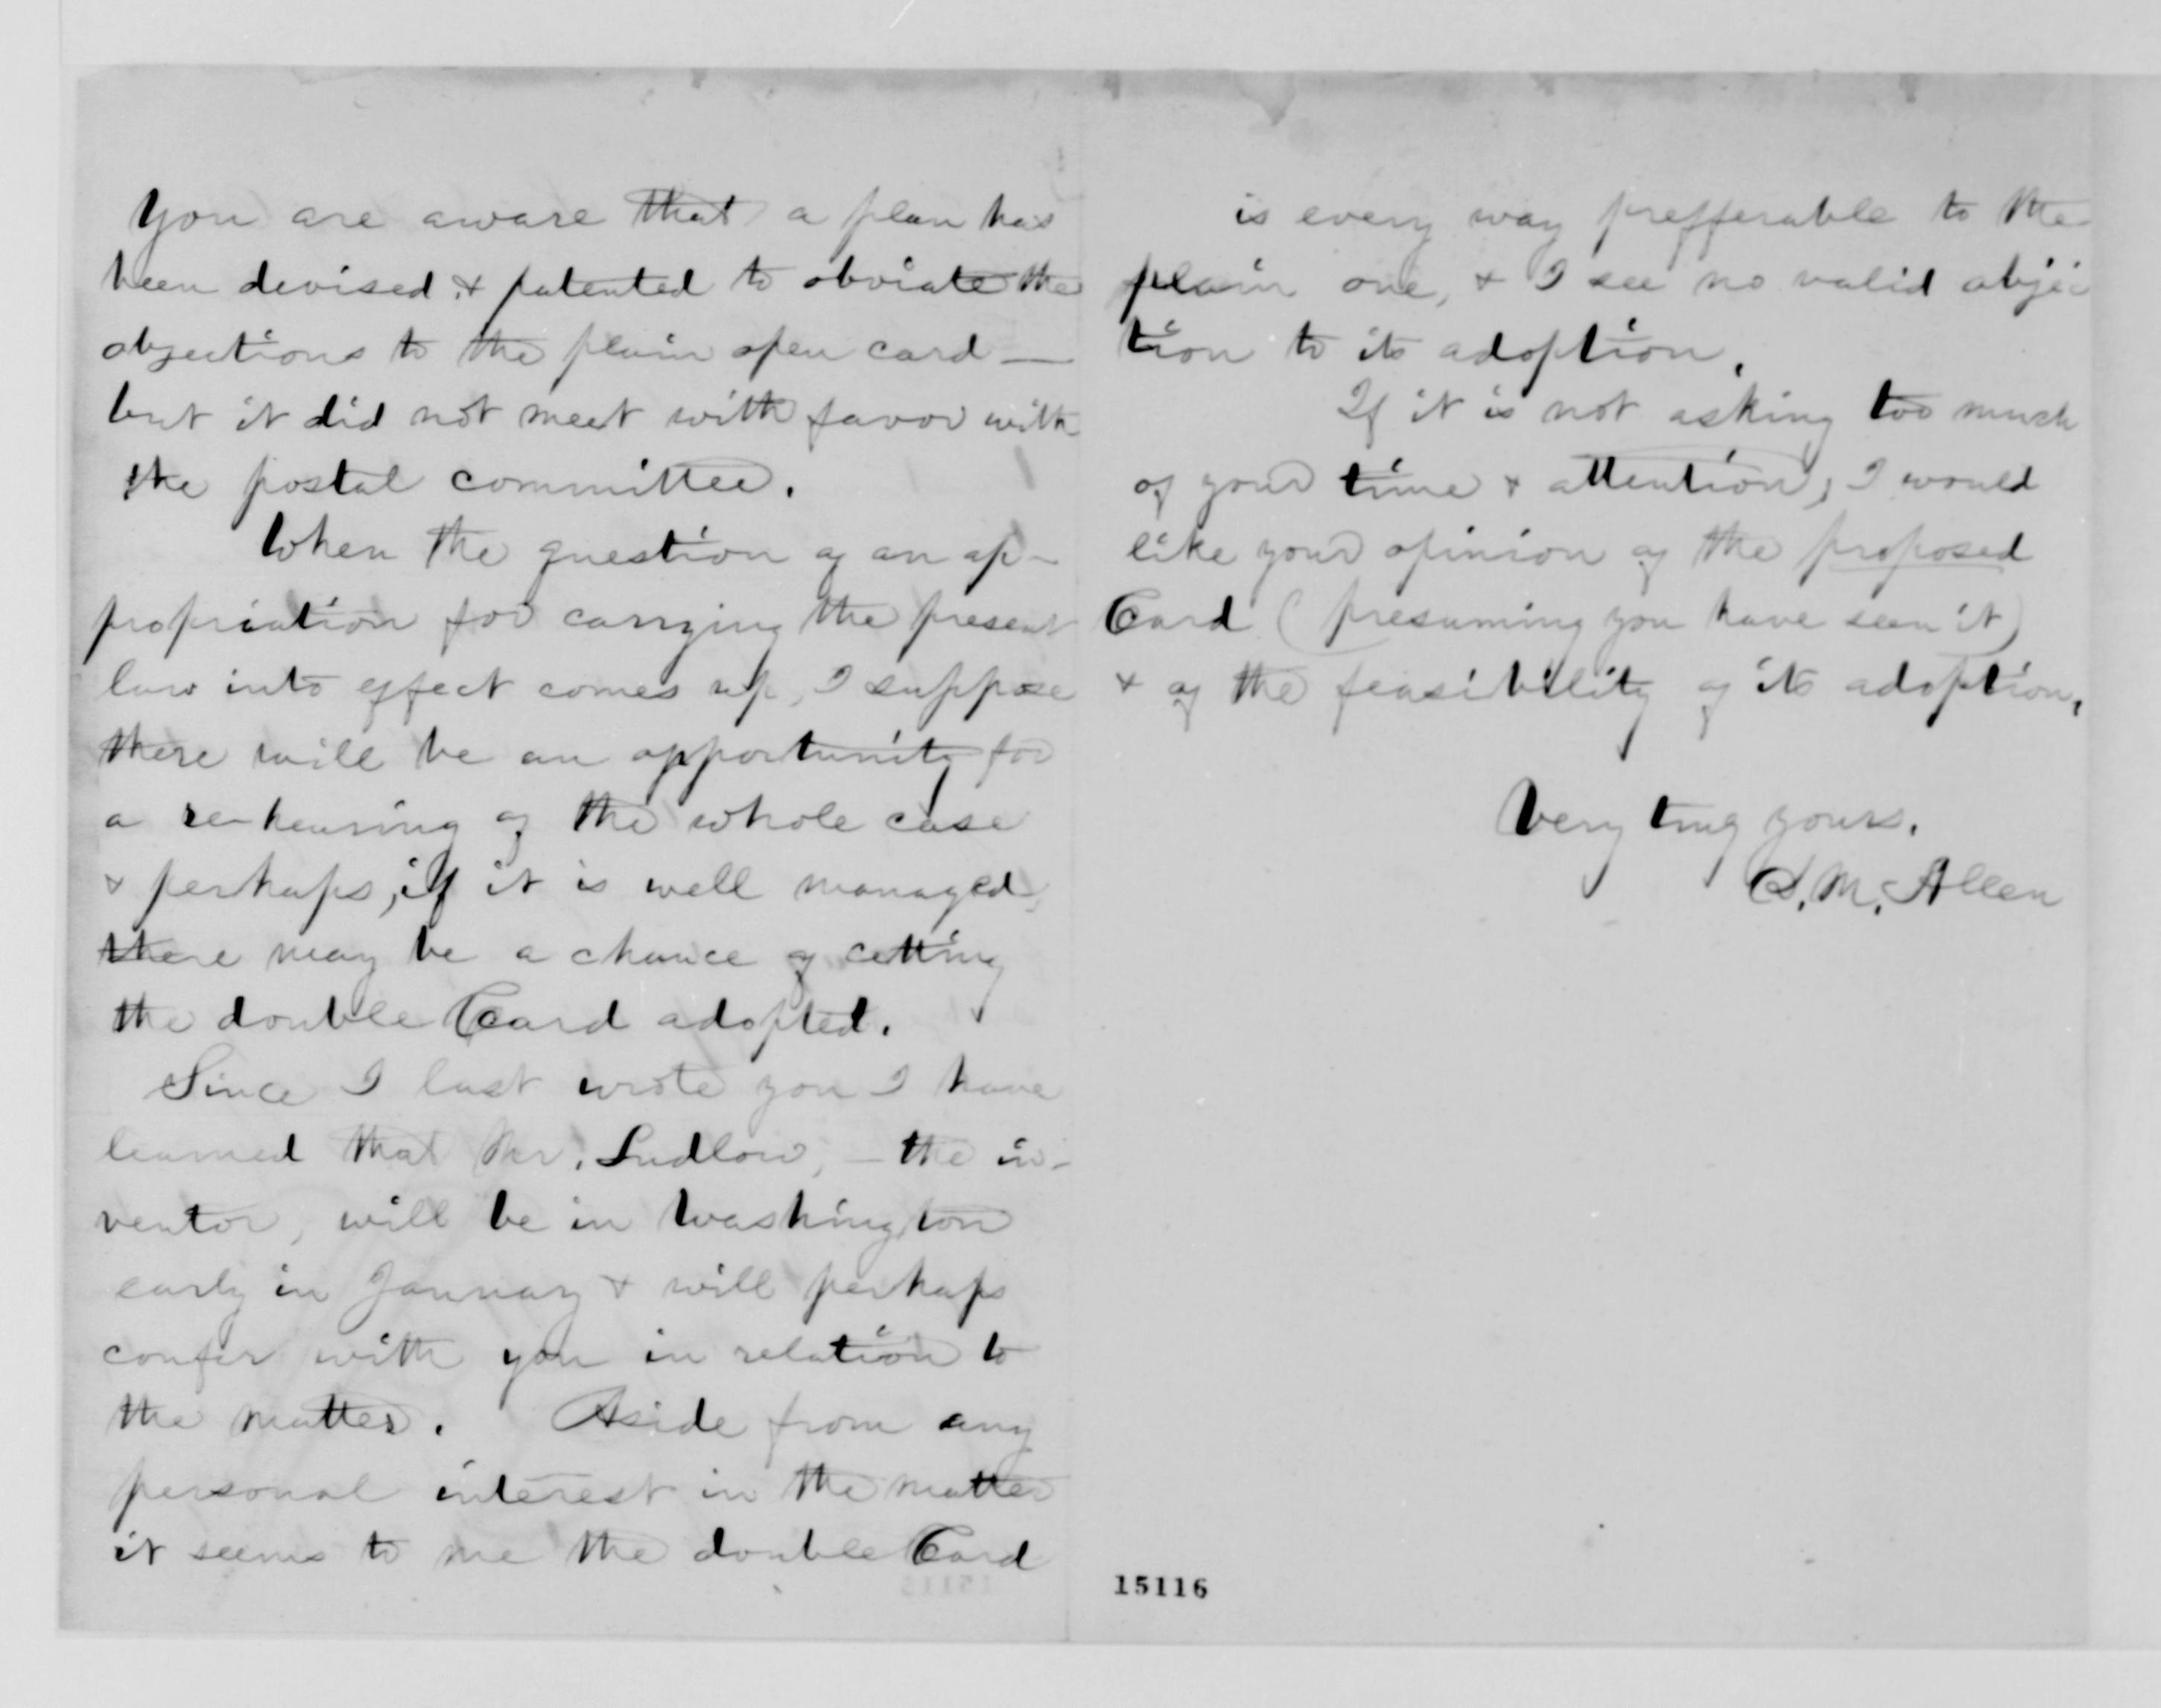 You are aware that a plan has
been devised & patented to obviate the
objections to the plain open card —
but it did not meet with favor with
the postal committee.
When the question of an ap-
propriation for carrying the present
law into effect comes up, I suppose
there will be an opportunity for
a re-hearing of the whole case
& perhaps, if it is well managed,
there may be a chance of getting
the double Card adopted.
Since I last wrote you I have
learned that Mr. Ludlow, — the in-
ventor, will be in Washington
early in January & will perhaps
confer with you in relation to
the matter. Aside from any
personal interest in the matter
it seems to me the double Card
is every way prefferable to the
plain one, & I see no valid objec
tion to its adoption.
If it is not asking too much
of your time & attention, I would
like your opinion of the proposed
Card (presuming you have seen it)
& of the feasibility of its adoption.
Very truly yours.
S. M. Allen
15116